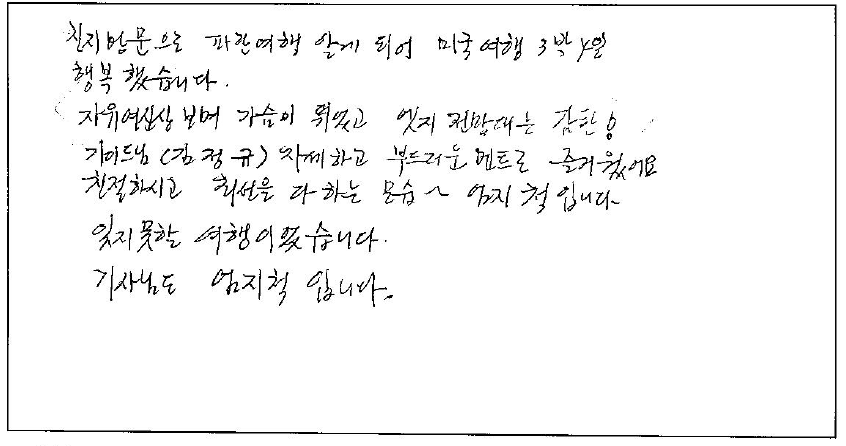 친지방문으로 파란여행 알게 되어 미국여행 3박4일
행복했습니다.
자유여신상 보며 가슴이 뛰었고 엣지 전망대는 감탄!
가이드님 (김정규) 자세하고 부드러운 멘트로 즐거웠어요
친절하시고 최선을 다하는 모습~ 엄지 척입니다~
잊지못할 여행이었습니다.
기사님도 엄지척 입니다.